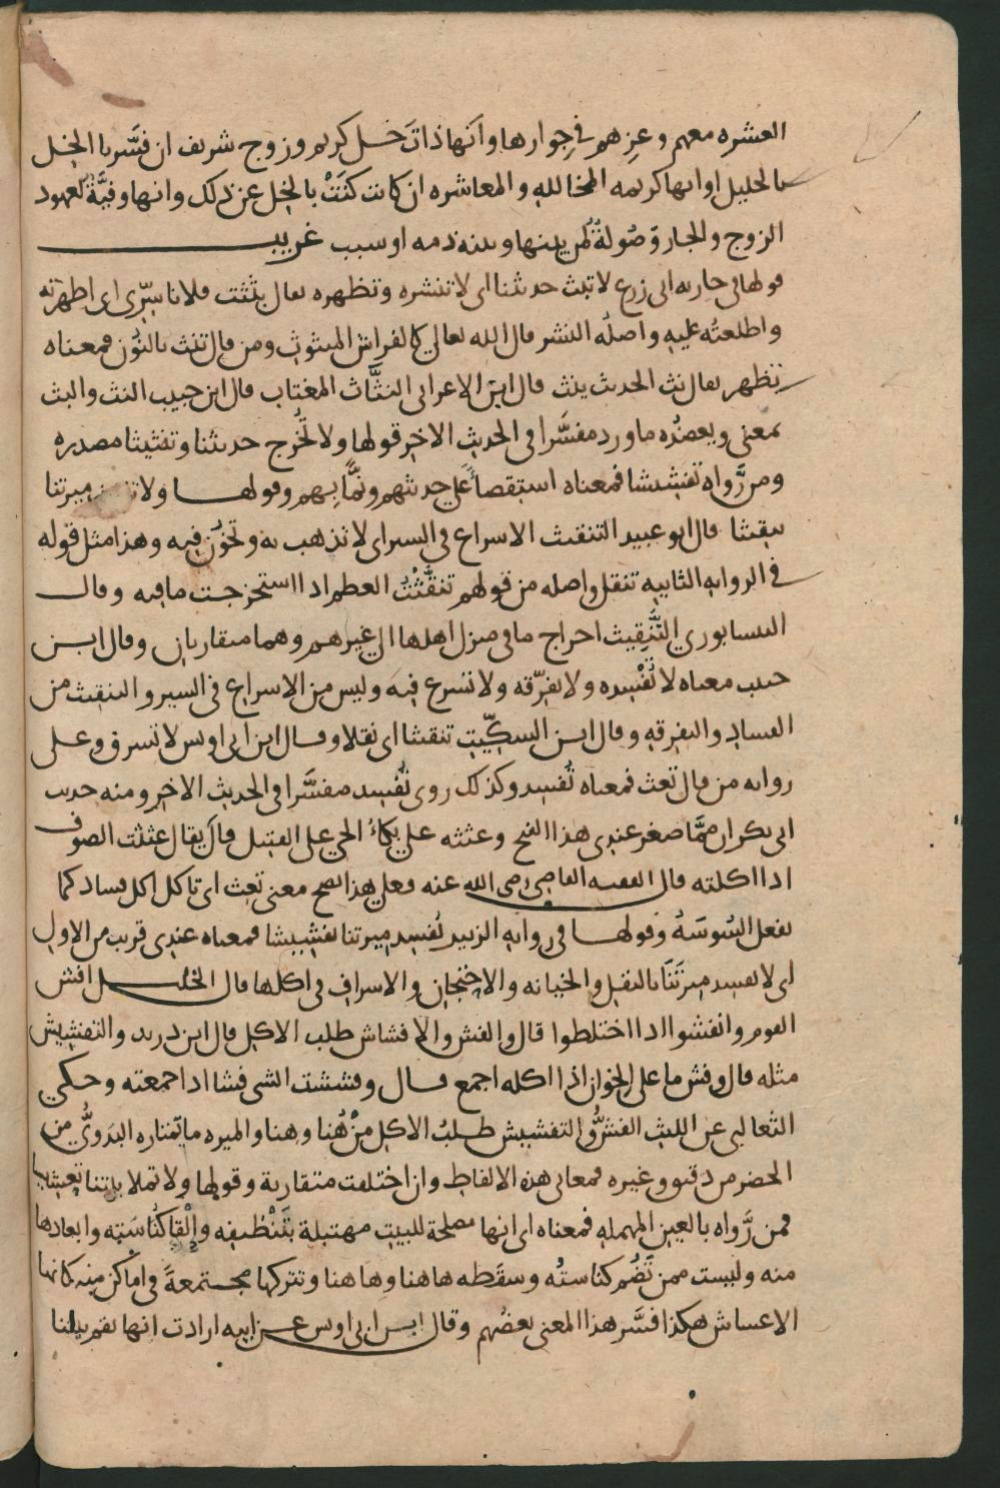 العشره معهم وعزهم في جوارها وأنها ذات خل كريم وزوج شريف ان فسرنا الخل
بالخليل او انها كريمه المخالله والمعاشره ان كانت كنت بالخل عن ذلك وانها وفية لعهود
الزوج والجار وصولة لمن بينها وبينه ذمه او سبب غريب
قولها في جاريه ابي زرع لا تبث حديثنا اى لا تنشره وتظهره يقال بثثت فلانا سرى اى اظهرته
واطلعته عليه واصله النشر قال الله تعالى كالفراش المبثوث ومن قال تنث بالنون فمعناه
تظهر يقال نث الحديث ينث قال ابن الاعرابى النثاث المغتاب قال ابن حبيب النث والبث
بمعنى ويعضده ما ورد مفسرا في الحديث الاخر قولها ولا تخرج حديثنا وتفثيثا مصدره
ومن رواه تفتيشا فمعناه استقصاء على حديثهم ونما بهم وقولها ولا ميرتنا
تنقيثا قال ابو عبيد التنقيث الاسراع في السير اى لا تذهب به وتخون فيه وهذا مثل قوله
في الروايه الثانيه تنقل واصله من قولهم تنقثت العظم اذا استخرجت ما فيه وقال
النيسابوري التنقيث اخراج ما في منزل اهلها الى غيرهم وهما متقاربان وقال ابن
حبيب معناه لا تفسده ولا تفرقه ولا تسرع فيه وليس من الاسراع في السير والتنقيث من
الفساد والتفرقه وقال ابن السكيت تنقثنا اى نقلا وقال ابن ابى اويس لا تسرق وعلى
روايه من قال تعث فمعناه تفسد وكذلك روى تفسد مفسرا في الحديث الاخر ومنه حديث
ابى بكر ان مما صغر عندى هذا الفتح وعثته على بكاء الحي على القتيل قال يقال عثثت الصوف
اذا اكلته قال الفقيه القاضى رضى الله عنه فعلى هذا يصح معنى تعث اى تاكل اكل فساد كما
تفعل السوسة وقولها في روايه الزبير تفسد ميرتنا تفشيشا فمعناه عندى قريب من الاول
اى لا تفسد ميرتنا بالنقل والخيانه والاحتجان والاسراف في اكلها قال الخليل افتش
القوم وانفشوا اذا اختلطوا قال والفش والافشاش طلب الاكل قال ابن دريد والتفشيش
مثله قال وفش ما على الخوان اذا اكله اجمع قال وفششت الشى فشا اذا جمعته وحكى
الثعالبى عن الليث الفش والتفشيش طلب الاكل من هنا وهنا والميره ما يمتاره البدوى من
الحضر من دقيق وغيره فمعانى هذه الالفاظ وان اختلفت متقاربة وقولها ولا تملا بيتنا تعشيشا
فمن رواه بالعين المهمله فمعناه اى انها مصلحة للبيت مهتبلة بتنظيفه والقا كناسته وابعادها
منه وليست ممن تضم كناسته وسقطه هاهنا وهاهنا وتتركها مجتمعة في اماكن منه كانها
الاعشاش هكذا فسر هذا المعنى بعضهم وقال ابن ابى اويس عن ابيه ارادت انها تقم بيتنا